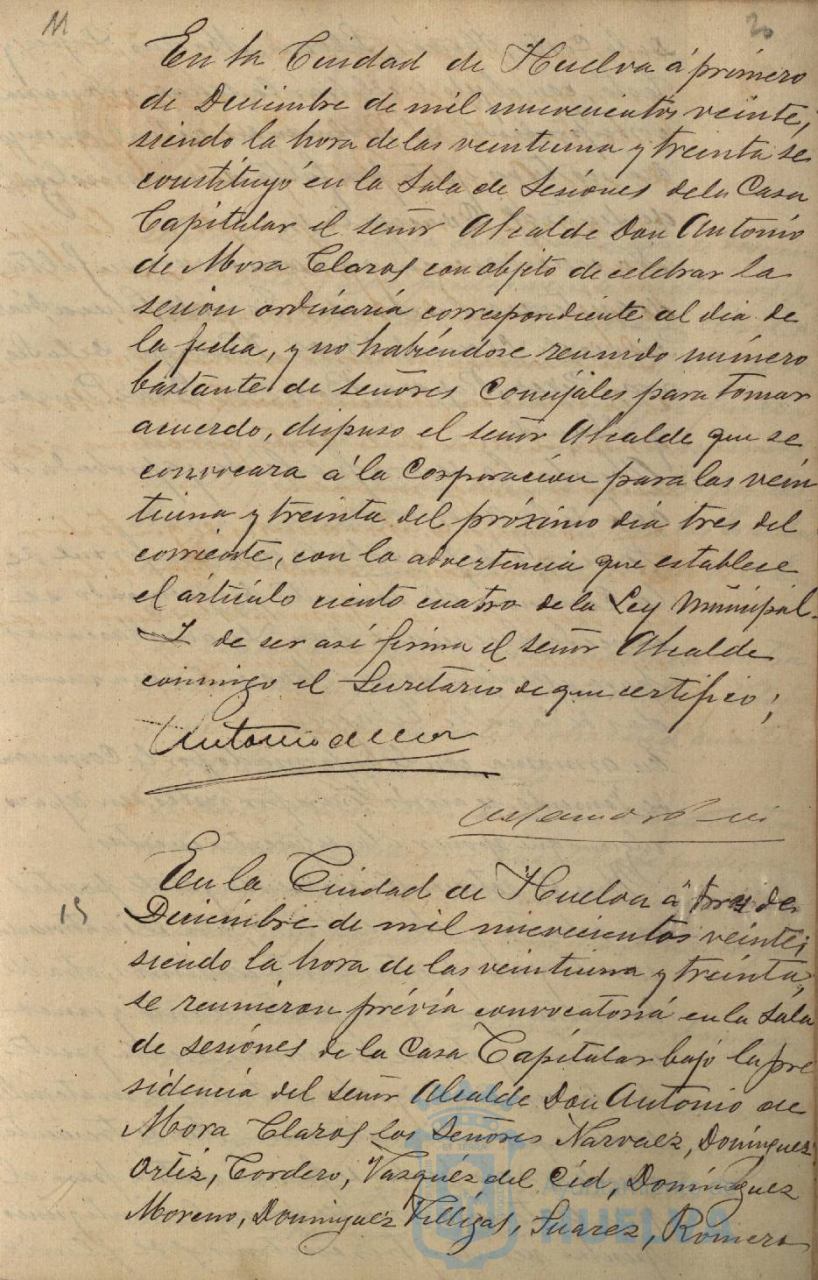 11
20
En la Ciudad de Huelva á primero
de Diciembre de mil novecientos veinte,
siendo la hora de las veintiuna y treinta se
constituyó en la Sala de Sesiones de la Casa
Capitular el señor Alcalde Don Antonio
de Mora Claros con objeto de celebrar la
sesión ordinaria correspondiente al dia de
la fecha, y no habiéndose reunido número
bastante de señores Concejales para tomar
acuerdo, dispuso el señor Alcalde que se
convocara á la Corporación para las vein
tiuna y treinta del próximo dia tres del
corriente, con la advertencia que establece
el artículo ciento cuatro de la Ley Municipal.
Y de ser así firma el señor Alcalde
conmigo el Secretario de que certifico;
Antonio de Mora
En la Ciudad de Huelva á tres de
15
Diciembre de mil novecientos veinte;
siendo la hora de las veintiuna y treinta,
se reunieron prévia convocatoria en la Sala
de sesiones de la Casa Capitular bajo la pre
sidencia del señor Alcalde Don Antonio de
Mora Claros los Señores Narvaez, Domínguez
Ortiz, Cordero, Vazquéz del Cid, Domínguez
Moreno, Dominguez Villegas, Suarez, Romero
HUELVA